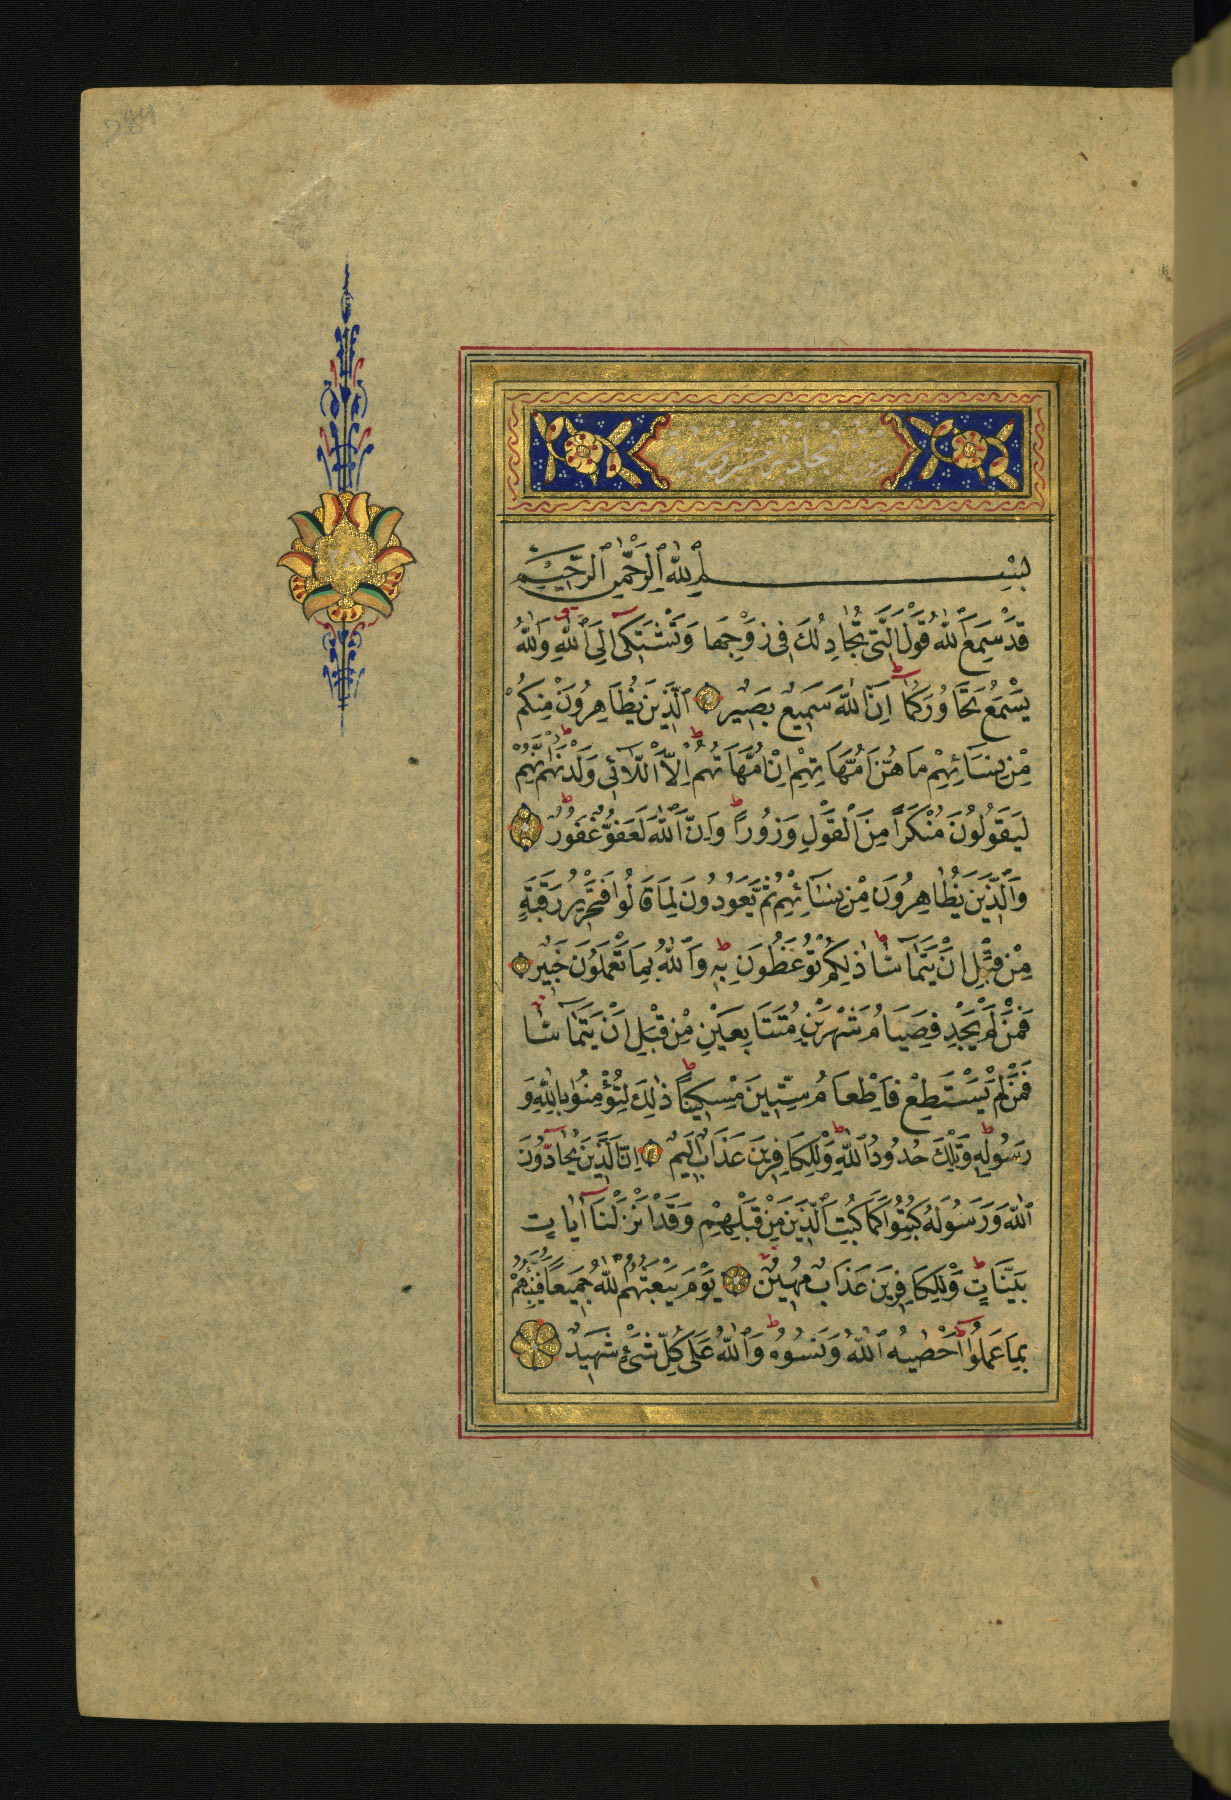 بِسْمِ اللّٰهِ الرَّحْمٰنِ الرَّحِيمِ
قَدْ سَمِعَ اللّٰهُ قَوْلَ الَّتِي تُجَادِلُكَ فِي زَوْجِهَا وَتَشْتَكِي إِلَى اللّٰهِ وَاللّٰهُ
يَسْمَعُ تَحَاوُرَكُمَا إِنَّ اللّٰهَ سَمِيعٌ بَصِيرٌ الَّذِينَ يُظَاهِرُونَ مِنْكُمْ
مِنْ نِسَائِهِمْ مَا هُنَّ أُمَّهَاتِهِمْ إِنْ أُمَّهَاتُهُمْ إِلَّا اللَّائِي وَلَدْنَهُمْ وَإِنَّهُمْ
لَيَقُولُونَ مُنْكَرًا مِنَ الْقَوْلِ وَزُورًا وَإِنَّ اللّٰهَ لَعَفُوٌّ غَفُورٌ
وَالَّذِينَ يُظَاهِرُونَ مِنْ نِسَائِهِمْ ثُمَّ يَعُودُونَ لِمَا قَالُوا فَتَحْرِيرُ رَقَبَةٍ
مِنْ قَبْلِ أَنْ يَتَمَاسَّا ذٰلِكُمْ تُوعَظُونَ بِهِ وَاللّٰهُ بِمَا تَعْمَلُونَ خَبِيرٌ
فَمَنْ لَمْ يَجِدْ فَصِيَامُ شَهْرَيْنِ مُتَتَابِعَيْنِ مِنْ قَبْلِ أَنْ يَتَمَاسَّا
فَمَنْ لَمْ يَسْتَطِعْ فَإِطْعَامُ سِتِّينَ مِسْكِينًا ذٰلِكَ لِتُؤْمِنُوا بِاللّٰهِ وَ
رَسُولِهِ وَتِلْكَ حُدُودُ اللّٰهِ وَلِلْكَافِرِينَ عَذَابٌ أَلِيمٌ إِنَّ الَّذِينَ يُحَادُّونَ
اللّٰهَ وَرَسُولَهُ كُبِتُوا كَمَا كُبِتَ الَّذِينَ مِنْ قَبْلِهِمْ وَقَدْ أَنْزَلْنَا آيَاتٍ
بَيِّنَاتٍ وَلِلْكَافِرِينَ عَذَابٌ مُهِينٌ يَوْمَ يَبْعَثُهُمُ اللّٰهُ جَمِيعًا فَيُنَبِّئُهُمْ
بِمَا عَمِلُوا أَحْصٰيهُ اللّٰهُ وَنَسُوهُ وَاللّٰهُ عَلَى كُلِّ شَيْءٍ شَهِيدٌ